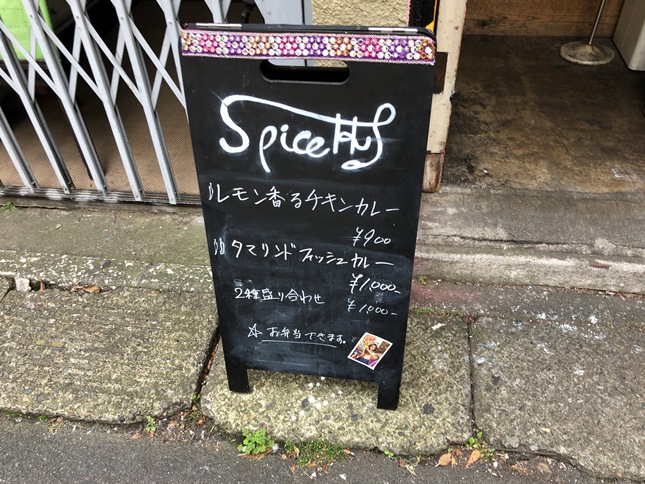 Spice
レモン香るチキンカレー
¥900
タマリンドフィッシュカレー
¥1,000-
2種盛り合わせ ¥1,000-
☆お弁当できます。